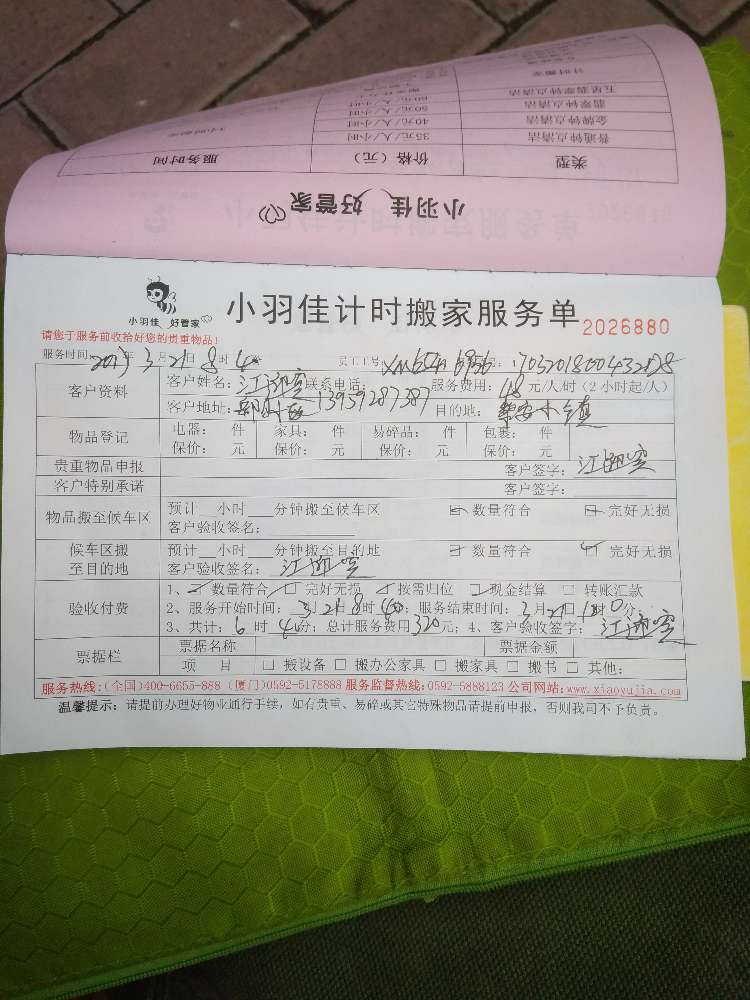 计时搬家
五星翡翠钟点清洁
翡翠钟点清洁 60元/人/小时
金牌钟点清洁 50元/人/小时
普通钟点清洁 40元/人/小时
35元/人/小时
类型 价格（元） 服务时间
小羽佳 好管家
小羽佳 好管家
小羽佳计时搬家服务单 2026880
请您于服务前收拾好您的贵重物品！
服务时间: 年3月21日8时 员工工号: 170320180043
客户资料 客户姓名: 联系电话: 13959287387 服务费用: 48元/人/时(2小时起/人)
客户地址: 目的地:
物品登记 电器: 件 家具: 件 易碎品: 件 包裹: 件
保价: 元 保价: 元 保价: 元 保价: 元
贵重物品申报 客户签字:
客户特别承诺 客户签字:
物品搬至候车区 预计__小时___分钟搬至候车区 数量符合 完好无损
客户验收签名:
候车区搬至目的地 预计__小时___分钟搬至目的地 数量符合 完好无损
客户验收签名:
验收付费 1、数量符合 完好无损 按需归位 现金结算 □ 转账汇款
2、服务开始时间: 3月21日8时40分; 服务结束时间: 3月21日 时0分;
3、共计: 6时40分; 总计服务费用320元; 4、客户验收签字:
票据栏 票据名称 票据金额
项 目 □ 搬设备 □ 搬办公家具 □ 搬家具 □ 搬书 □ 其他:
服务热线:(全国)400-6655-888 (厦门)0592-5178888 服务监督热线:0592-5888123 公司网站:www.xiaoyujia.com
温馨提示: 请提前办理好物业通行手续，如有贵重、易碎或其它特殊物品请提前申报，否则我司不予负责。